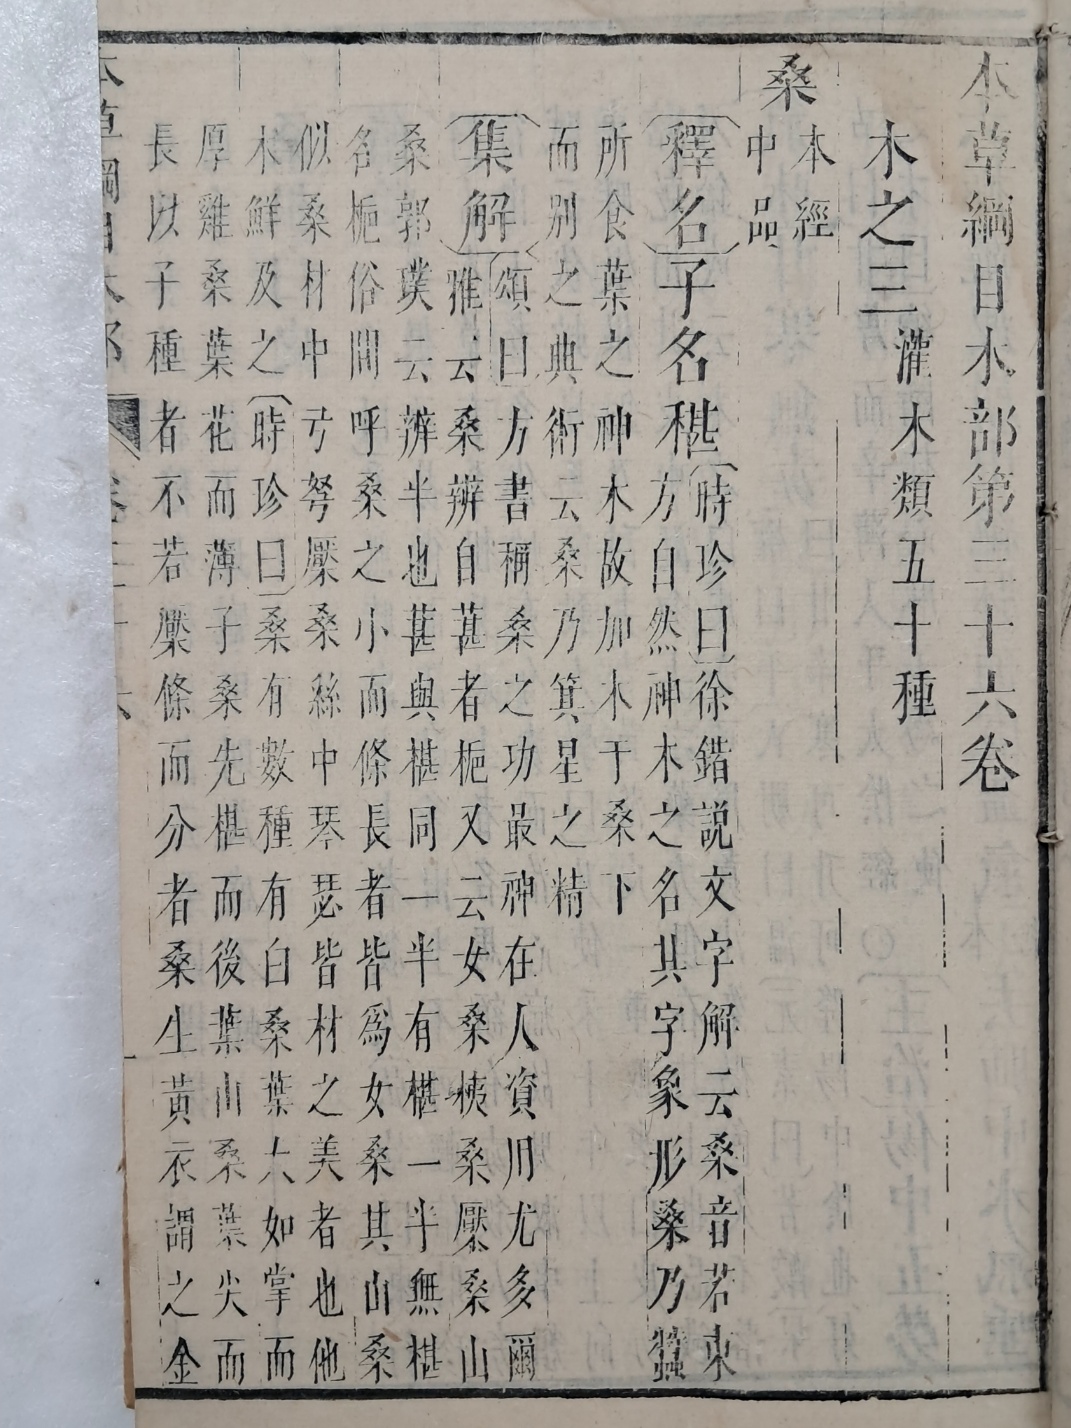 本草綱目木部第三十六卷
木之三灌木類五十種
桑
本經
中品
釋名子名椹
時珍曰徐鍇説文字解云桑音若東
方自然神木之名其字象形桑乃蠶
所食葉之神木故加木于桑下
而別之典術云桑乃箕星之精
集解
頌曰方書稱桑之功最神在人資用尤多爾
雅云桑辨自葚者梔又云女桑桋桑檿桑山
桑郭璞云辨半也葚與椹同一半有椹一半無椹
名梔俗間呼桑之小而條長者皆爲女桑其山桑
似桑材中弓弩檿桑絲中琴瑟皆材之美者也他
木鮮及之時珍曰桑有數種有白桑葉大如掌而
厚雞桑葉花而薄子桑先椹而後葉山桑葉尖而
長以子種者不若壓條而分者桑生黃衣謂之金